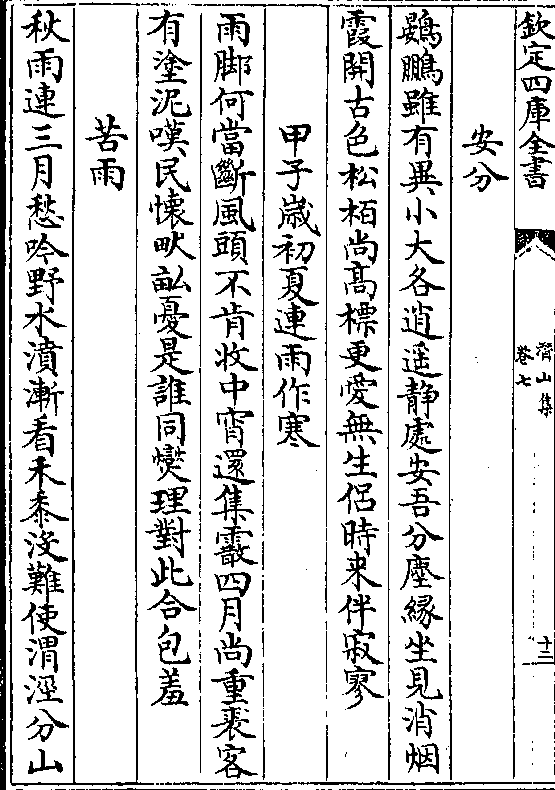 欽定四庫全書
灊山集
卷七
十二
安分
鷃鵬雖有異小大各逍遥静處安吾分塵緣坐見消烟
霞開古色松栢尚髙標更愛無生侣時来伴寂寥
甲子嵗初夏連雨作寒
雨脚何當斷風頭不肯收中宵還集霰四月尚重裘客
有塗泥嘆民懷畎畝憂是誰同爕理對此合包羞
苦雨
秋雨連三月愁吟野水濆漸看禾黍没難使渭涇分山